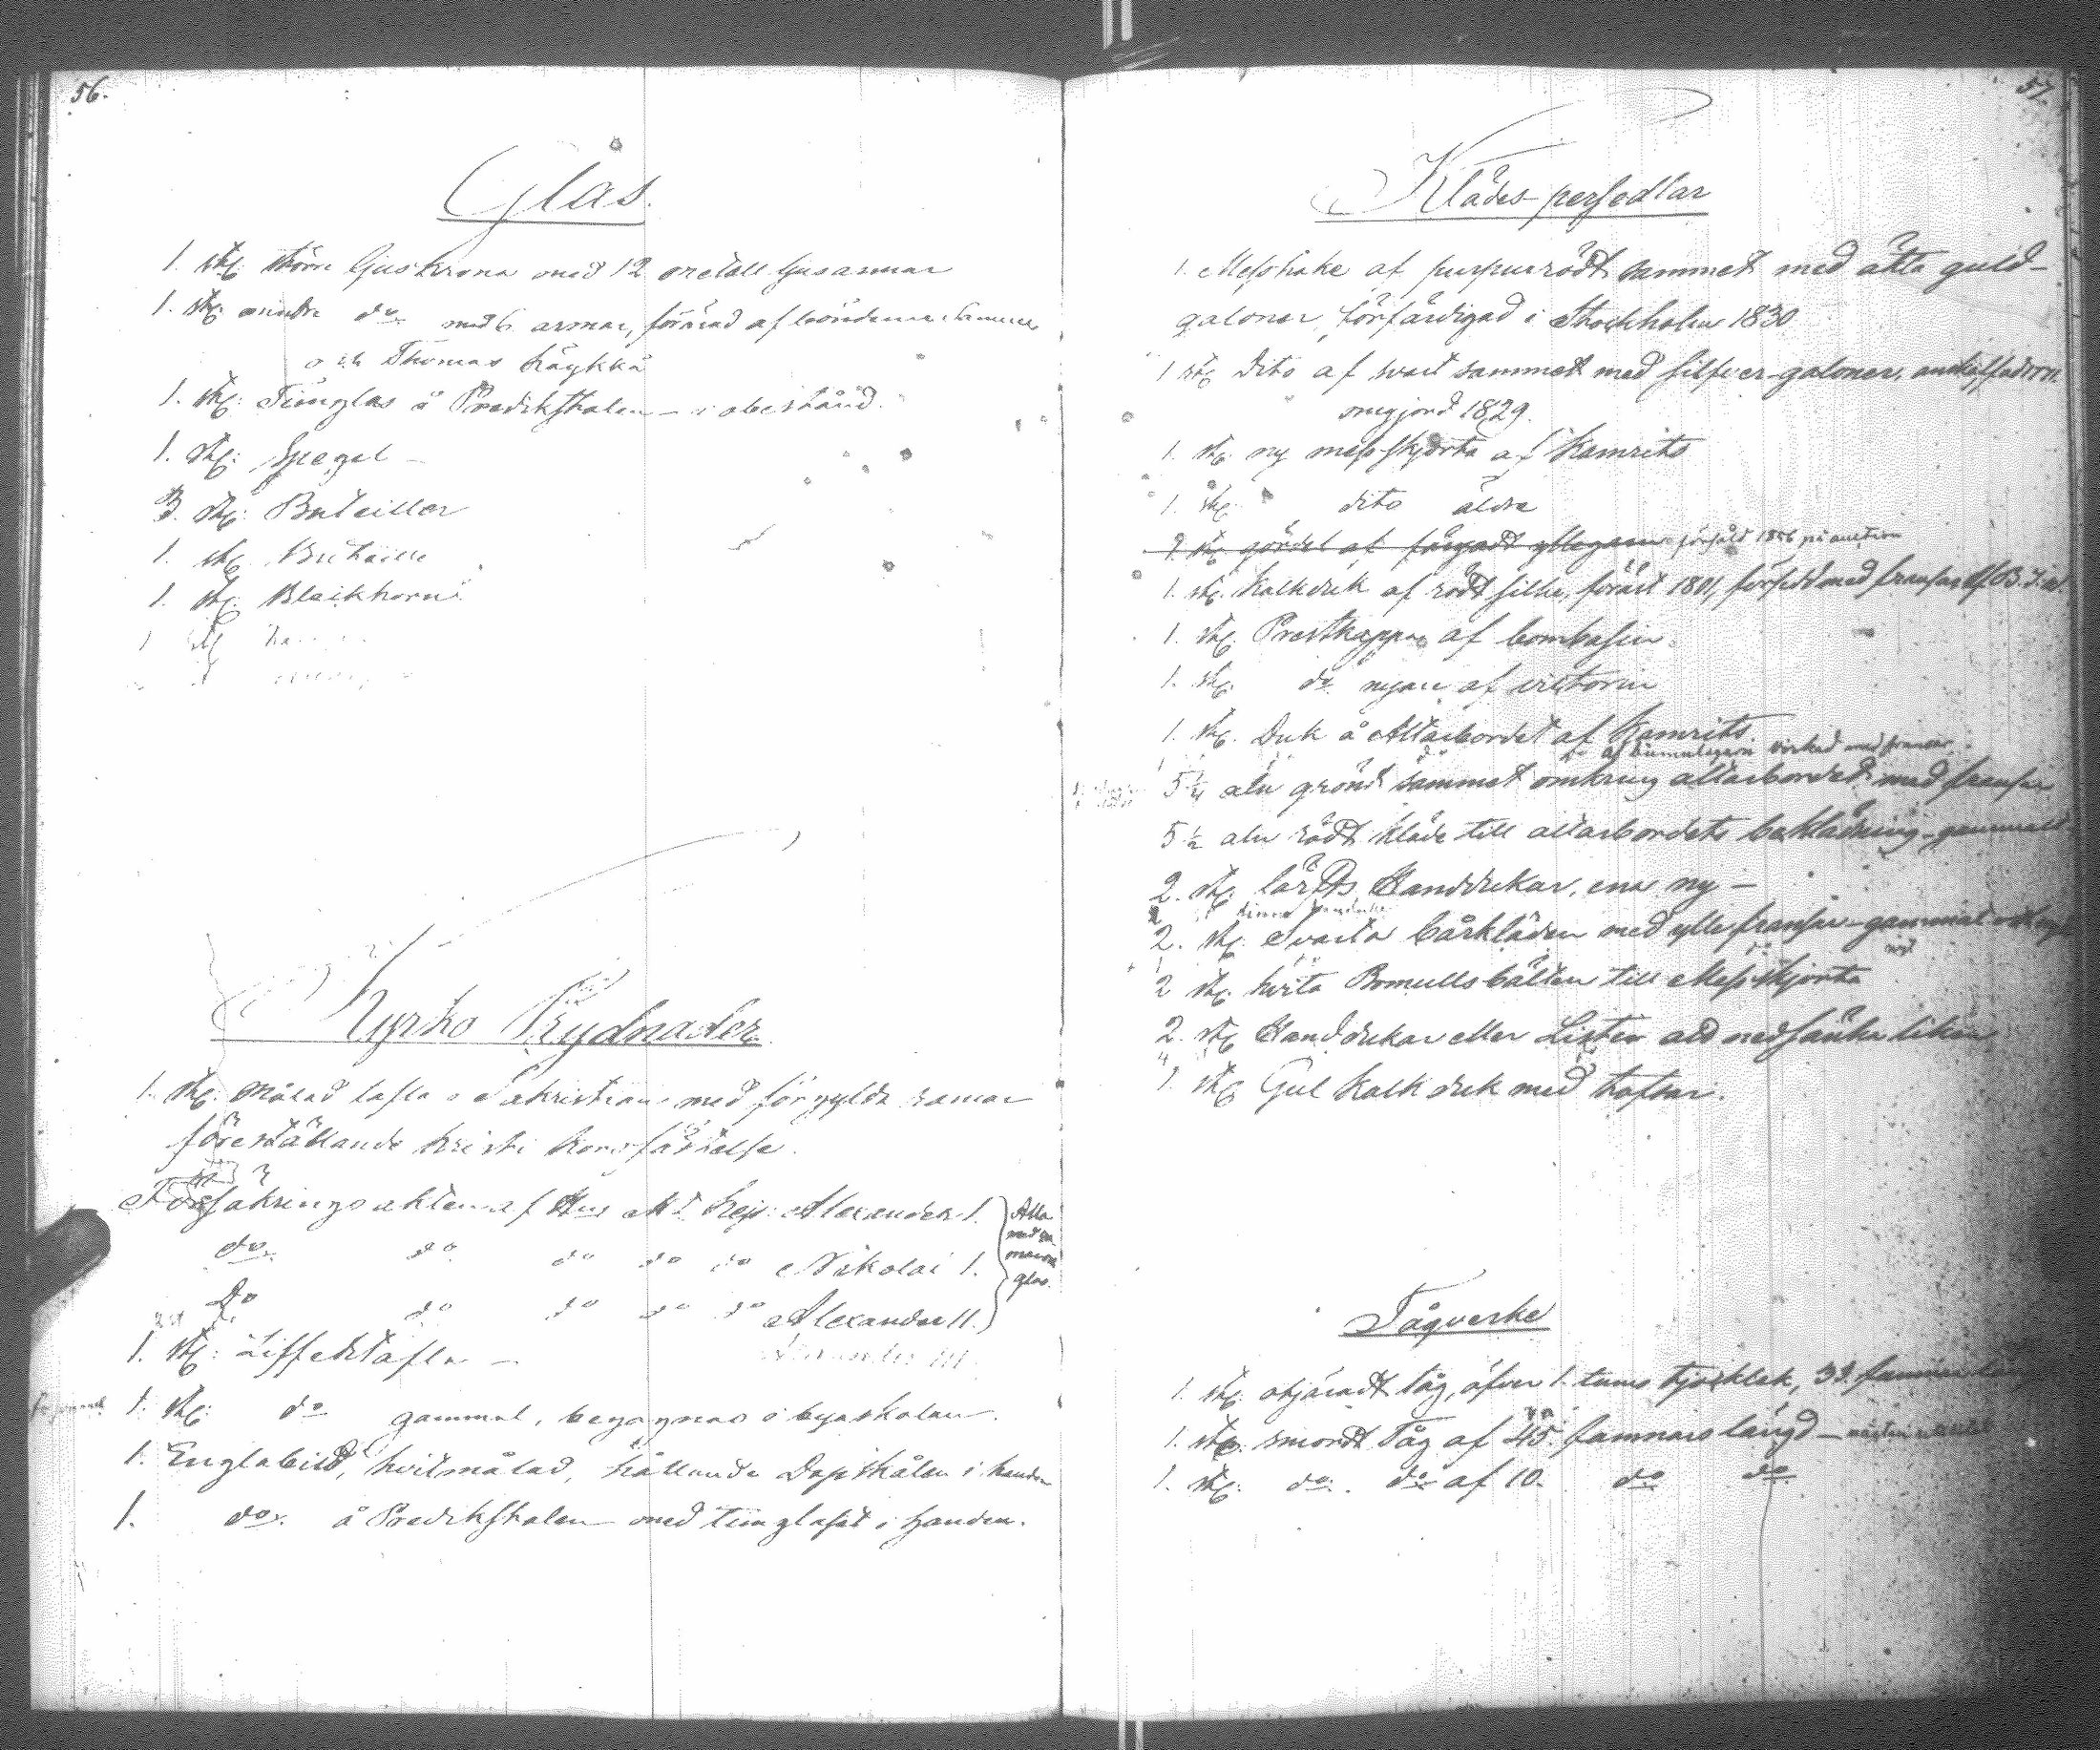 56.
Glas.
1. stk: större ljuskrona med 12 metall ljusarmar
1. stk: mindre do med 6 armar, förärad af bönderne
och Thomas Käykkä
1. stk: Timglas å Predikstolen - i obestånd.
1. stk: Spegel -
3. stk: Buteiller
1. stk
1. stk: Bleckhorn
1 stk
Kyrko Prydnader.
1. stk: målad tafla i Sakristian med förgylda ramar
föreställande Kristi Korsfästelse.
Försäkringsakten af Hns Mt Kejs: Alexander I.
do do do do do Nikolai I.
Do do do do do Alexander II.
Alexander III.
Alla
med
glas.
1. stk: Ziffertafla -
1. stk: do gammal, begagnas i byaskolan.
1. Englabild, hvitmålad, hållande Dopskålen i handen
1. do å Predikstolen med timglaset i handen.
57.
Klädes persedlar
1. Messhake af purpurrödt sammet med äkta guld-
galoner, förfärdigad i Stockholm 1830
1 stk dito af svart sammet med silfver-galoner,
omgjord 1829.
1. stk ny messkjorta af Kamrits
1. stk dito äldre
2 stk gördel af färgadt yllegarn försåld 1886 på auction
1. stk. Kalkduk af rödt silke, förärt 1801, försedd med fransar af
1. stk. Prestkappa af bombasin.
1. stk. do nyare af victorin
1. stk. Duk å Altarbordet af Kamrits.
do af bomullsgarn virkad med fransar.
5 1/4 aln grönt sammet omkring altarbordet med fransar
5 1/2 aln rödt kläde till altarbordets beklädning - gammalt
2. stk. lärfts Handdukar, ena ny -
2. stk. Svarta bårkläden med yllefransar - gammalt
nytt
2 stk: hvita Bomullsbälten till Messkjorta
2. stk Handdukar eller Lister att nedsänka liken
1. stk Gul Kalkduk med tofsar.
Tågverke
1. stk: otjäradt tåg, öfver 1. tums tjocklek, 31 famnar
1. stk: smordt Tåg af 45. famnars längd -
1. stk: do. do af 10. do do